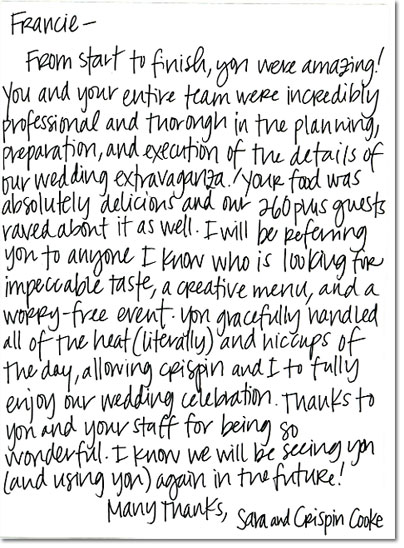 Francie —
From start to finish, you were amazing!
You and your entire team were incredibly
professional and thorough in the planning,
preparation, and execution of the details of
our wedding extravaganza! Your food was
absolutely delicious and our 260 plus guests
raved about it as well. I will be referring
you to anyone I know who is looking for
impeccable taste, a creative menu, and a
worry-free event. You gracefully handled
all of the heat (literally) and hiccups of
the day, allowing Crispin and I to fully
enjoy our wedding celebration. Thanks to
you and your staff for being so
wonderful. I know we will be seeing you
(and using you) again in the future!
Many Thanks, Sara and Crispin Cooke